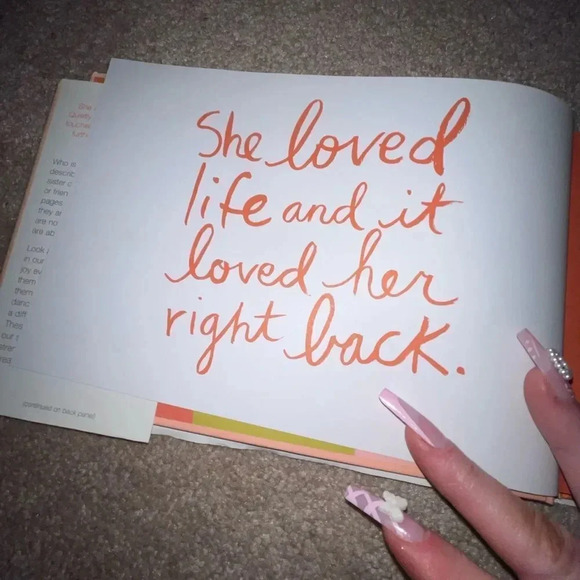 She loved
life and it
loved her
right back.
She
Who
describ
sister
or frien
pages
they ar
are no
are ab
Look
in our
joy ev
them
them
danc
a diff
Thes
our
(continued on back panel)